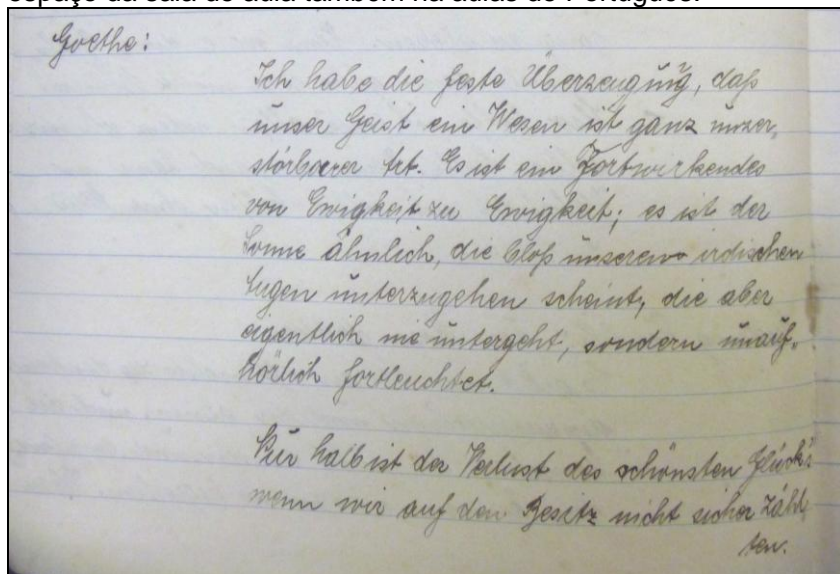 espaço da sala de aula também na aulas de Português.
Goethe:
Ich habe die feste Überzeugung, daß
unser Geist ein Wesen ist ganz unzer„
störbarer Art. Es ist ein Fortwirkendes
von Ewigkeit zu Ewigkeit; es ist der
Sonne ähnlich, die bloß unseren irdischen
Augen unterzugehen scheint, die aber
eigentlich nie untergeht, sondern unauf„
hörlich fortleuchtet.
Nur halb ist der Verlust des schönsten Glücks
wenn wir auf den Besitz nicht sicher zähl„
ten.